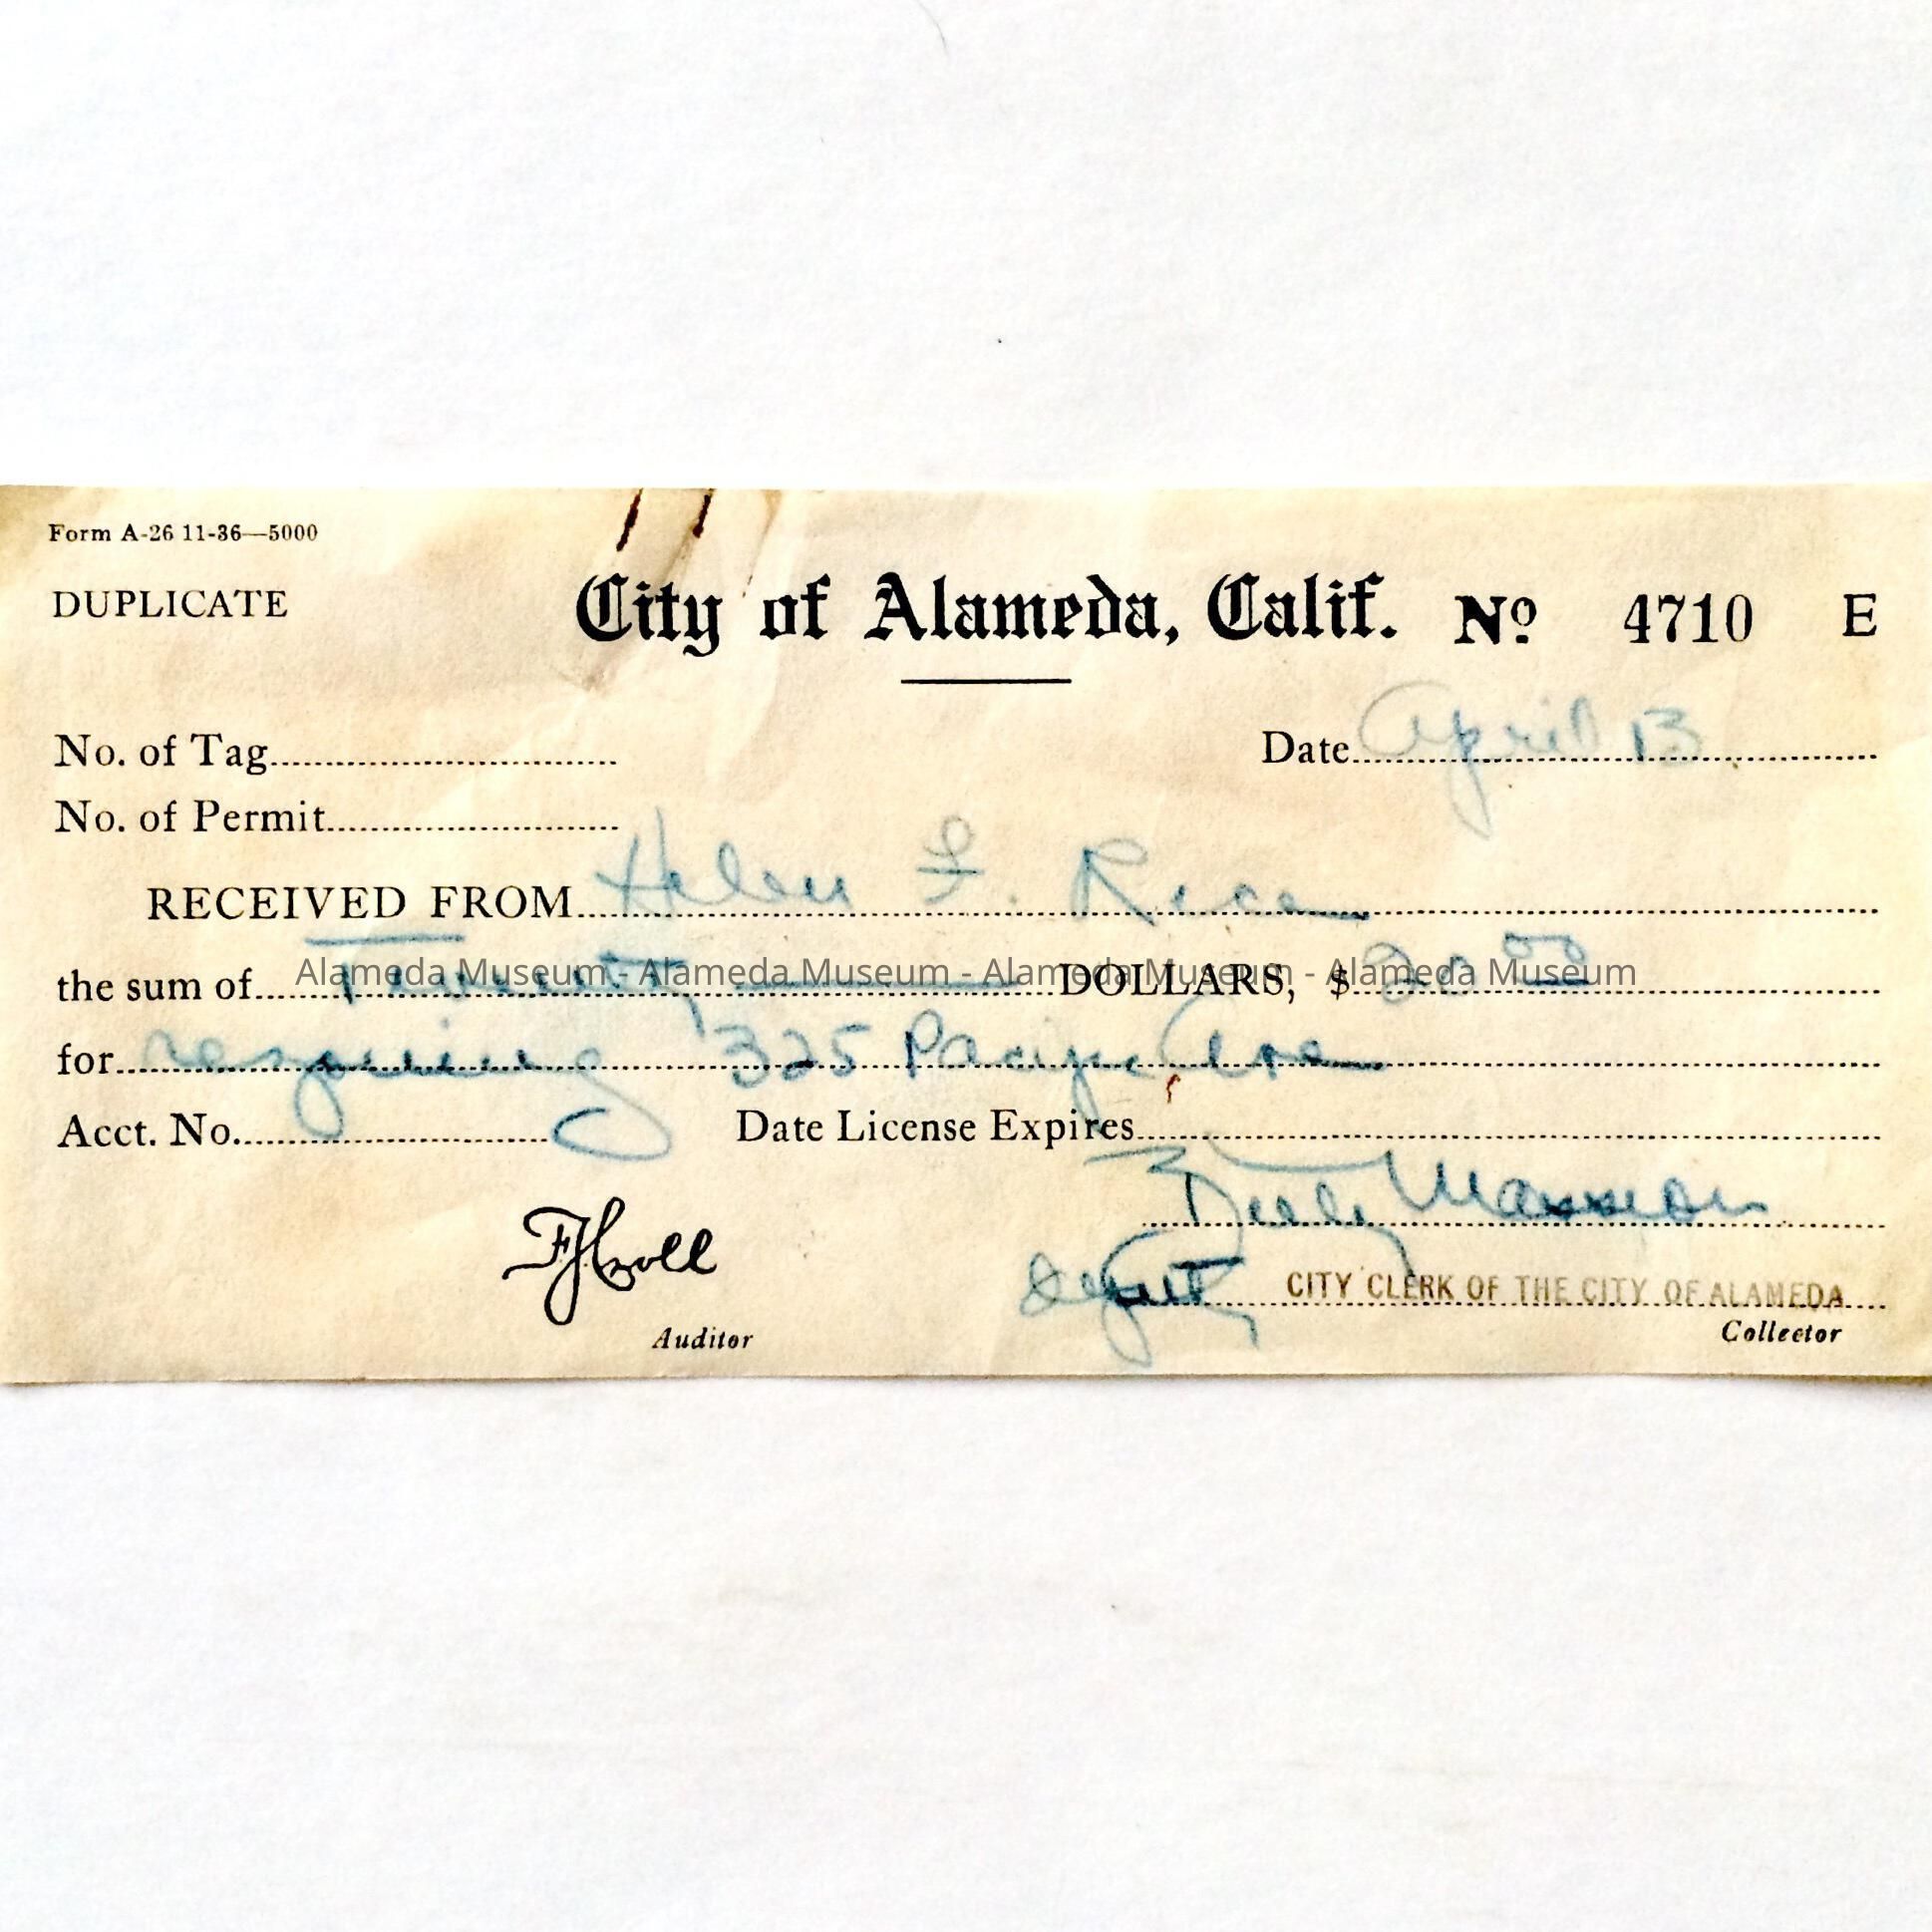 Form A-26 11-36—5000
DUPLICATE City of Alameda, Calif. Nº 4710 E
No. of Tag Date April 13
No. of Permit
RECEIVED FROM Helen F. Rice
the sum of Twenty DOLLARS, $ 20 00
Alameda Museum - Alameda Museum - Alameda Museum - Alameda Museum
for 325 Pacific Ave
Acct. No. Date License Expires
FJCroll
Auditor
Deputy CITY CLERK OF THE CITY OF ALAMEDA
Collector